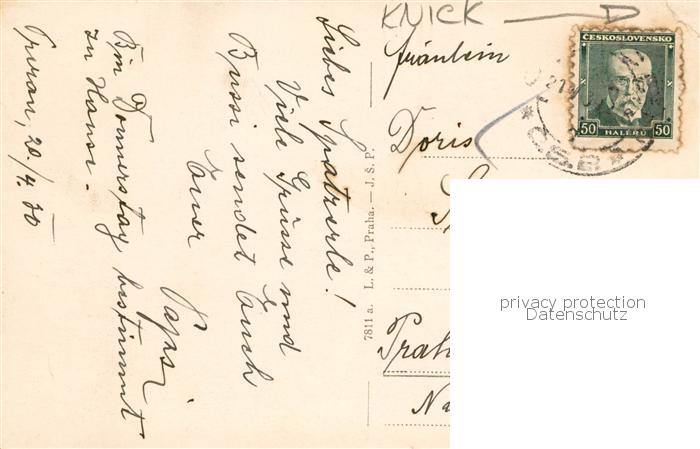 KNICK
ČESKOSLOVENSKO
50 HALÉRŮ 50
Liebes Spatzerle!
Viele Grüsse und
Bussi sendet Euch
Euer
Papsi
Bin Donnerstag bestimmt
zu Hause.
20/4. 30
7811 a. L. & P., Praha. — J. Š. P.
Fräulein
Doris
privacy protection
Datenschutz